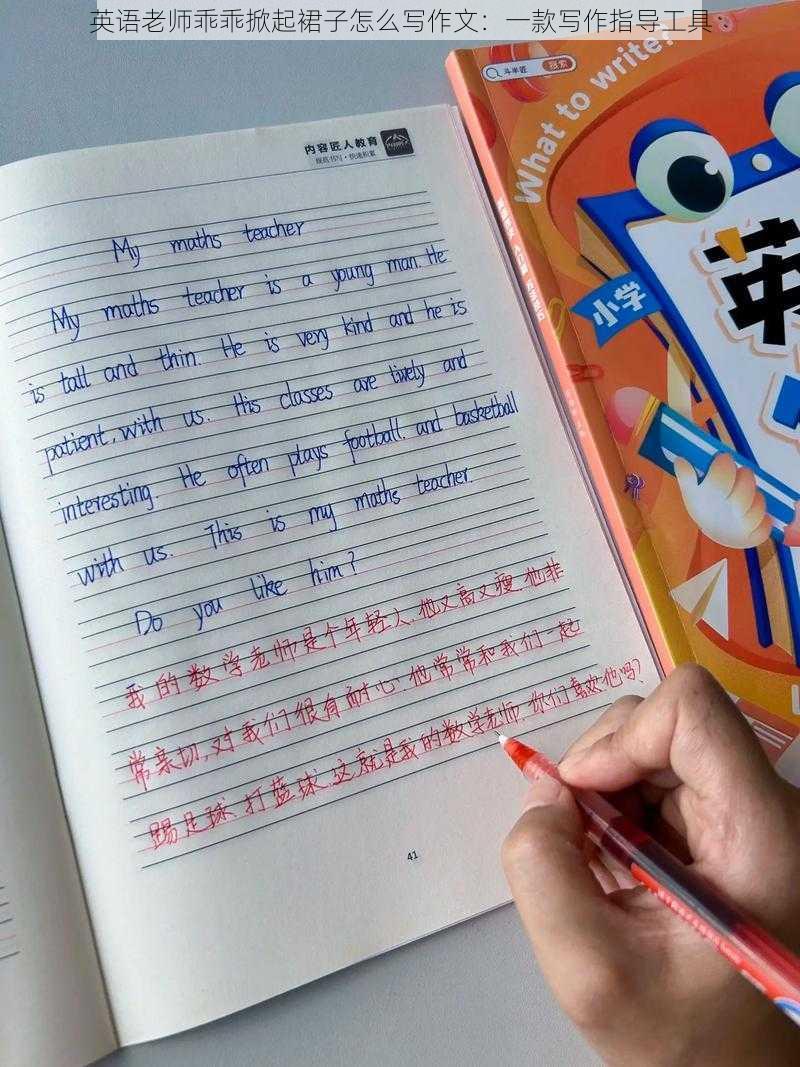 英语老师乖乖掀起裙子怎么写作文：一款写作指导工具
内容匠人教育
提高书写·快速积累
My maths teacher
My maths teacher is a young man. He
is tall and thin. He is very kind and he is
patient, with us. His classes are lively and
interesting. He often plays football. and basketball
with us. This is my maths teacher.
Do you like him?
我的数学老师是个年轻人.他又高又瘦.他非
常亲切,对我们很有耐心.他常常和我们一起
踢足球、打蓝球.这就是我的数学老师.你们喜欢他吗?
41
斗半匠
搜索
What to write?
小学
英